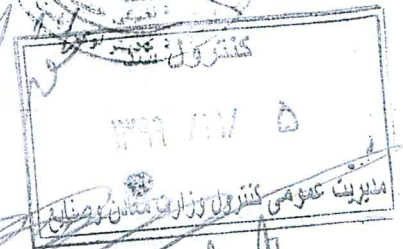 کنترول شد
۱۳۹۹ /۱۱/ ۵
مدیریت عمومی کنترول وزارت معادن وصنایع